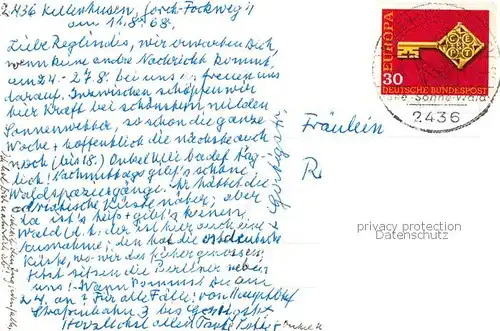 2436 Kellenhusen, Gorch-Fockweg 11
am 11.8.68.
Liebe Reglindis, wir erwarten Dich,
wenn keine andre Nachricht kommt,
am 24.-27.8. bei uns! freuen uns
darauf. Inzwischen schöpfen wir
hier Kraft bei schönstem milden
Sonnenwetter, so schon die ganze
Woche + hoffentlich die nächste auch
noch (bis 18.) Onkel badet täg-
lich! Nachmittags gibt's schöne
Waldspaziergänge. Ihr habt die
adriatische Küste näher; aber
da ist's heiß + gibt's keinen
Wald (d. h. der ist hier auch eine
Ausnahme; den hat die ostdeutsche
Küste, wo wir das früher genossen.
Jetzt sitzen die Berliner neben
uns! Wann kommst Du am
24. an? Für alle Fälle: von Hauptbhf
Straßenbahn 3 bis
Herzlichst allen Tante
EUROPA
CEPT
30
DEUTSCHE BUNDESPOST
Ostsee-Sonne-Wald
2436
Fräulein
R
privacy protection
Datenschutz